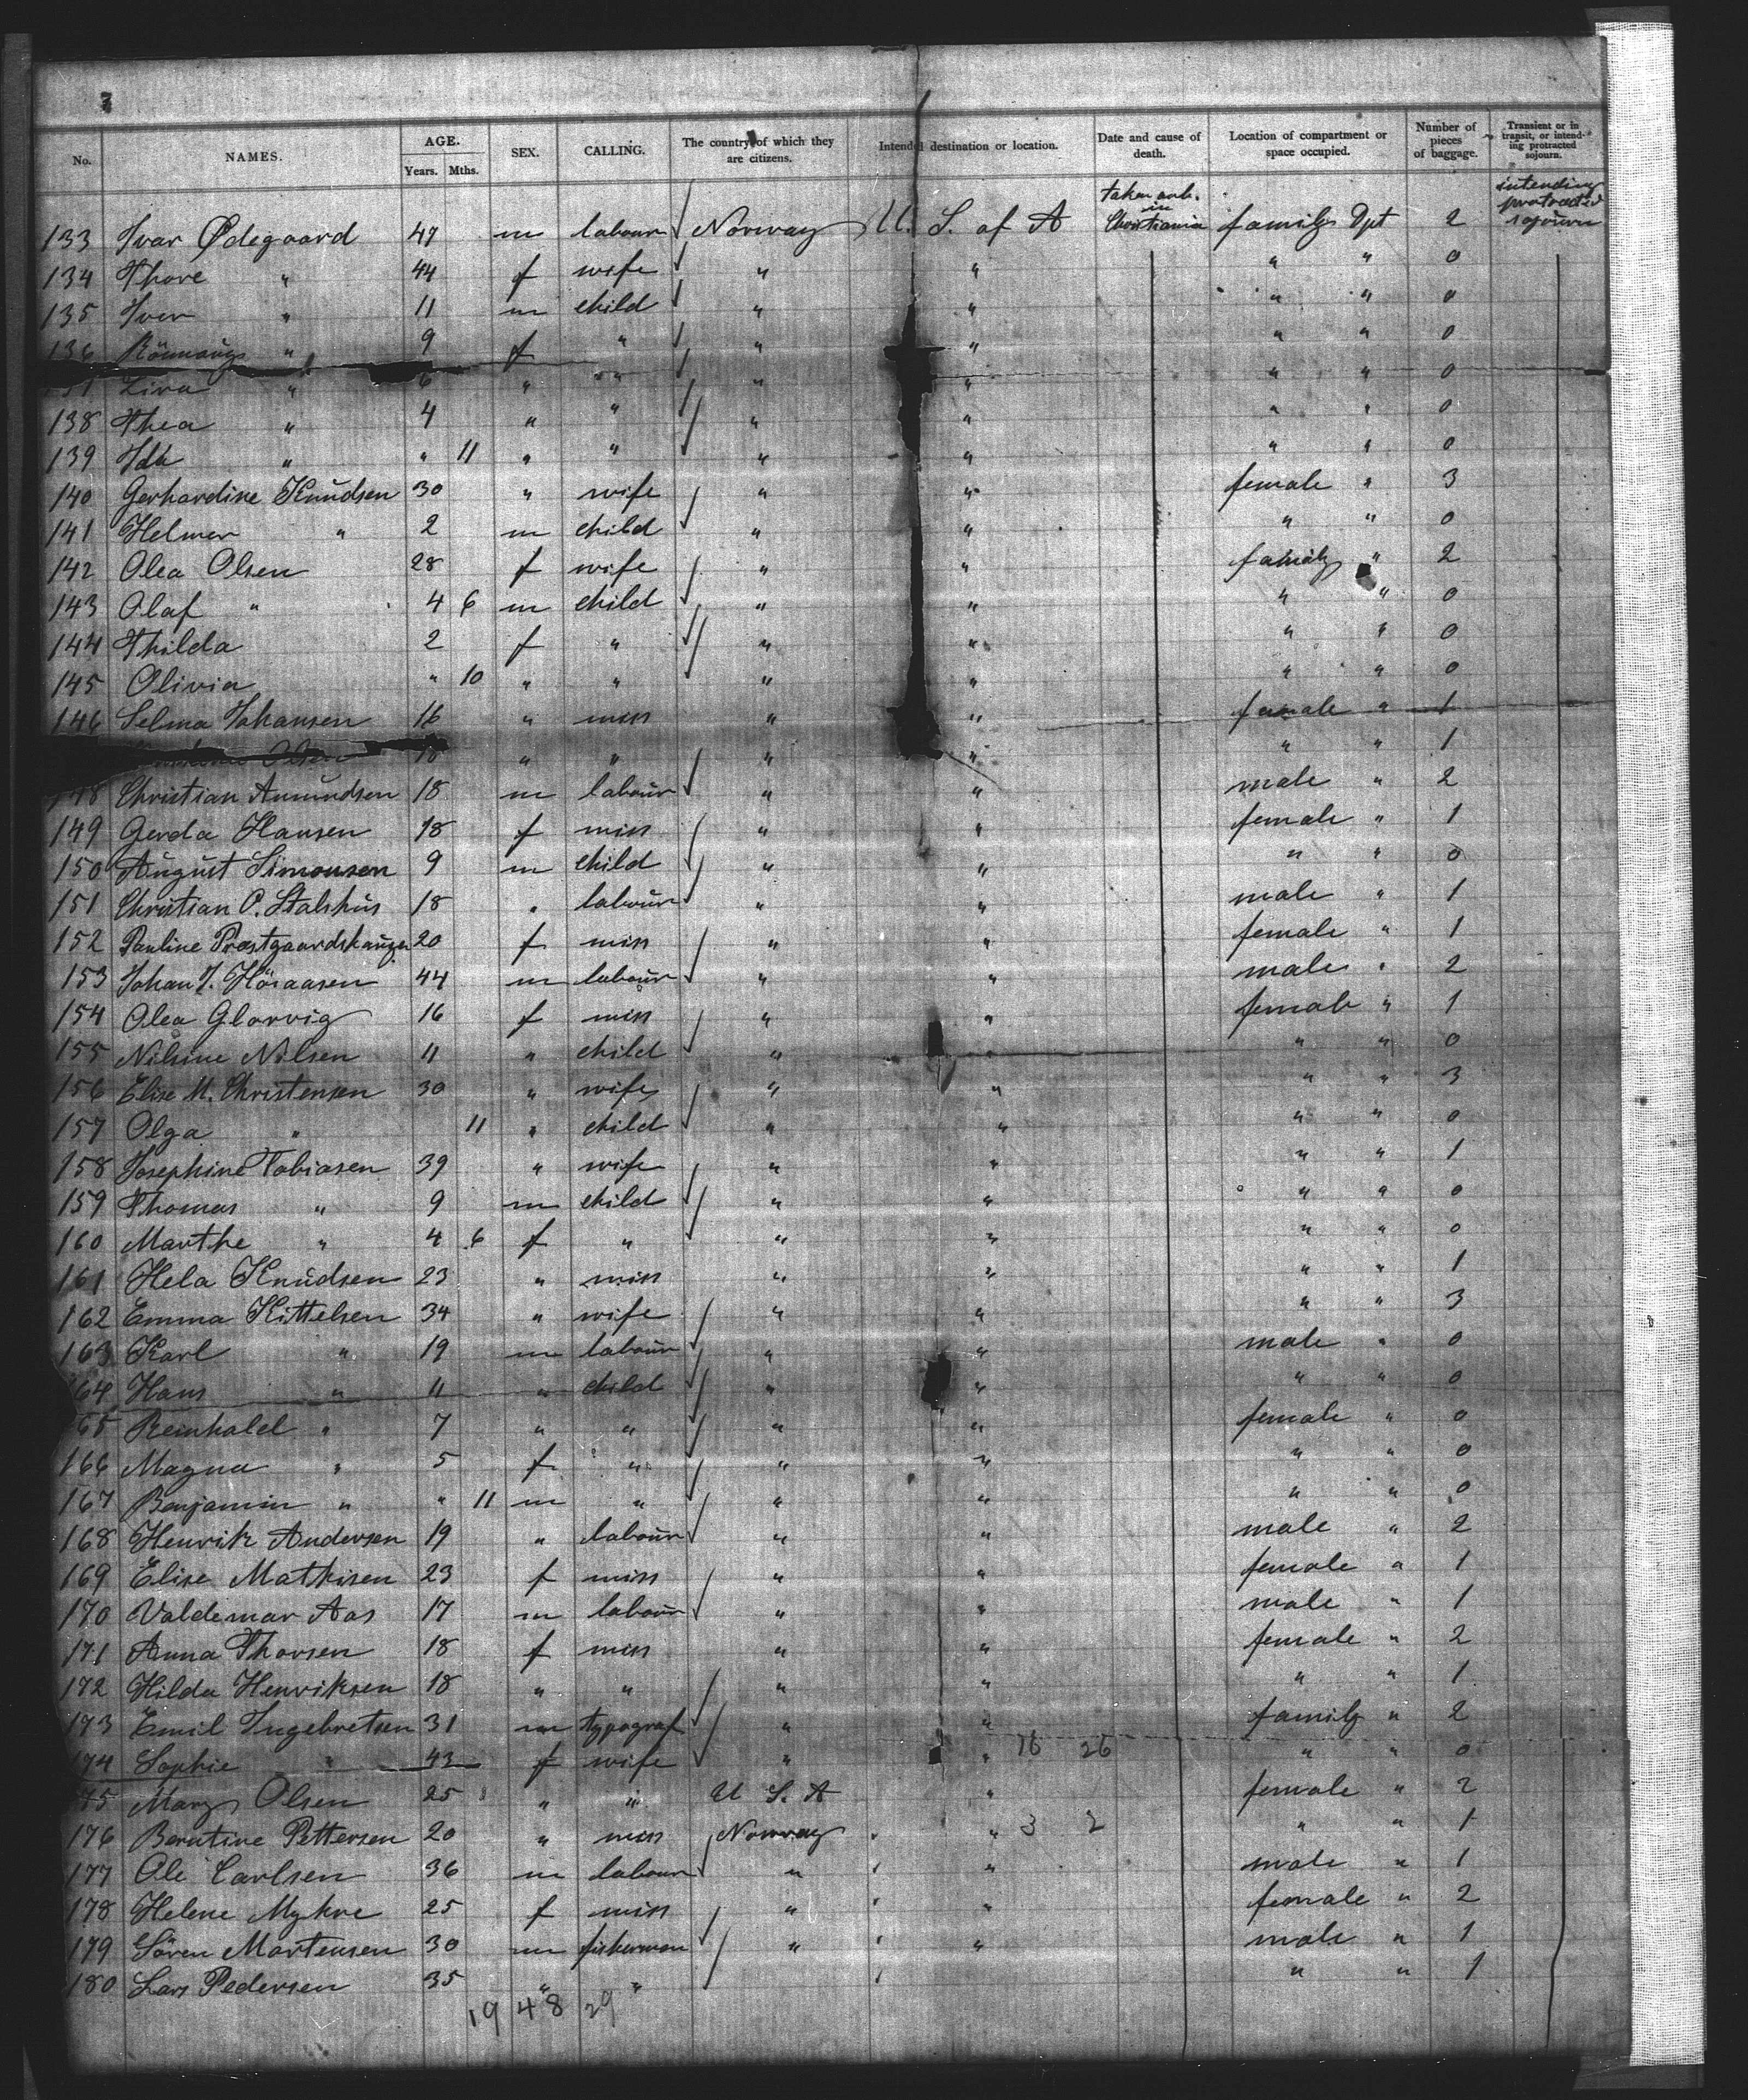 No. NAMES. AGE. Years. Mths. SEX. CALLING. The country of which they are citizens. Intended destination or location. Date and cause of death. Location of compartment or space occupied. Number of pieces of baggage. Transient or in transit, or intending protracted sojourn.
133 Ivar Ødegaard 47 m labour Norway U. S. of A taken onb. in Christiania family Dpt 2 intending protracted sojourn
134 Thore " 44 f wife " " " " 0
135 Iver " 11 m child " " " " 0
136 " 9 f " " " " " 0
Lina " 6 " " " " " " 0
138 Thea " 4 " " " " " " 0
139 Ida " " 11 " " " " " " 0
140 Gerhardine Knudsen 30 " wife " " female " 3
141 Helmer " 2 m child " " " " 0
142 Olea Olsen 28 f wife " " family " 2
143 Olaf " 4 6 m child " " " " 0
144 Thilda 2 f " " " " " 0
145 Olivia " 10 " " " " " " 0
146 Selma Johansen 16 " miss " " female " 1
Olsen 18 " " " " " " 1
148 Christian Amundsen 18 m labour " " male " 2
149 Gerda Hansen 18 f miss " " female " 1
150 August Simonsen 9 m child " " " " 0
151 Christian O. Stalshus 18 " labour " " male " 1
152 Pauline Præstgaardshaugen 20 f miss " " female " 1
153 Johan J. 44 m labour " " male " 2
154 Olea Glorvig 16 f miss " " female " 1
155 Nilsine Nilsen 11 " child " " " " 0
156 Elise M. Christensen 30 " wife " " " " 3
157 Olga " 11 " child " " " " 0
158 Josephine Tobiasen 39 " wife " " " " 1
159 Thomas " 9 m child " " " " 0
160 Marthe " 4 6 f " " " " " 0
161 Hela Knudsen 23 " miss " " " " 1
162 Emma Kittelsen 34 " wife " " " " 3
163 Karl " 19 m labour " " male " 0
164 Hans " 11 " child " " " " 0
165 Reinhold " 7 " " " " female " 0
166 Magna " 5 f " " " " " 0
167 Benjamin " " 11 m " " " " " 0
168 Henrik Andersen 19 " labour " " male " 2
169 Elise Mathisen 23 f miss " " female " 1
170 Valdemar Aas 17 m labour " " male " 1
171 Anna Thorsen 18 f miss " " female " 2
172 Hilda Henriksen 18 " " " " " " 1
173 Emil Ingebretsen 31 m typograf " " family " 2
174 Sophie " 43 f wife " " 16 26 " " 0
175 Mary Olsen 25 " " U S. A " female " 2
176 Berntine Pettersen 20 " miss Norway " 3 2 " " 1
177 Ole Carlsen 36 m labour " " male " 1
178 Helene Myhre 25 f miss " " female " 2
179 Sören Martensen 30 m fisherman " " male " 1
180 Lars Pedersen 35 " " " " 1
19 48 29